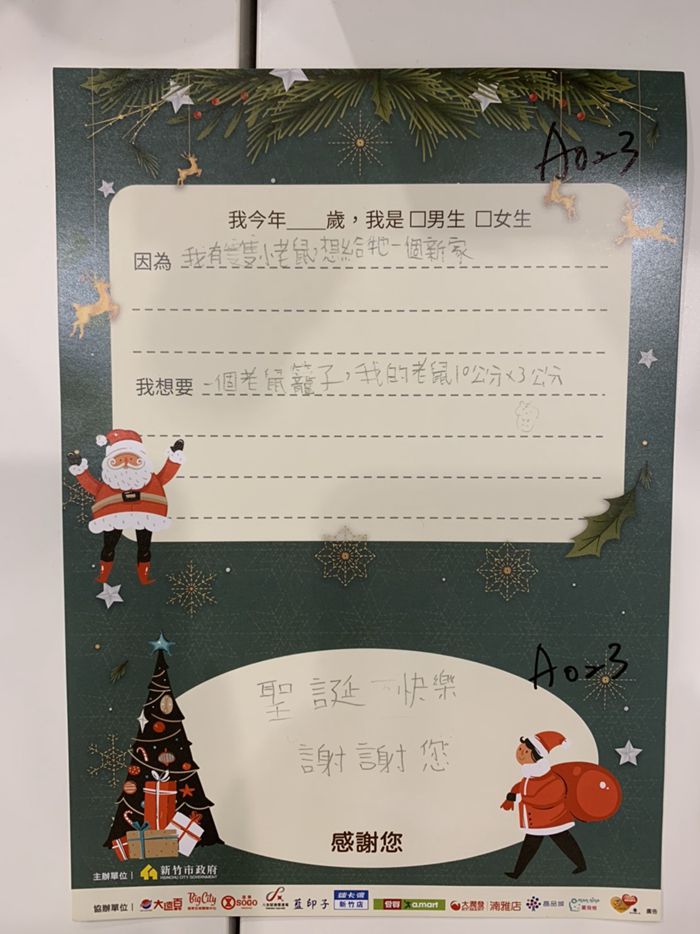 A023
我今年____歲，我是 □男生 □女生
因為 我有隻小老鼠,想給牠一個新家
我想要 一個老鼠籠子,我的老鼠10公分×3公分
聖誕快樂
A023
謝謝您
感謝您
主辦單位 | 新竹市政府
HSINCHU CITY GOVERNMENT
協辦單位 | 大遠百 BigCity SOGO 藍印子 新竹店 愛買 a.mart 大潤發 湳雅店 廣告